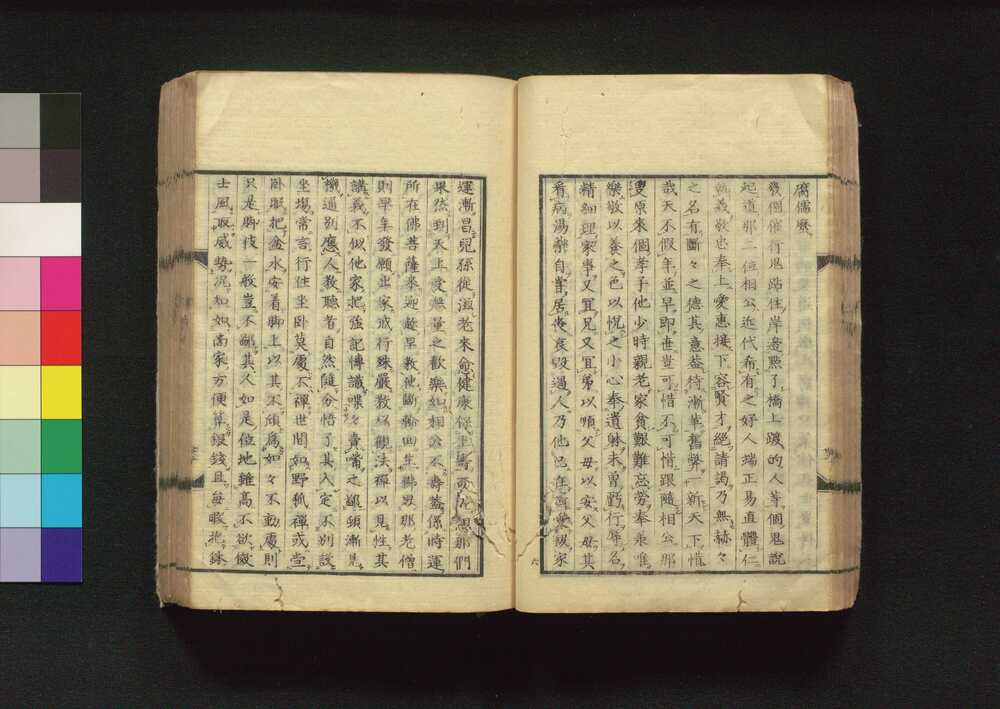 腐儒麼
幾個催行鬼站住岸邊點了橋上踱的人等個鬼說
起道那二位相公近代希有之好人端正易直體仁
義敬忠奉上愛惠接下容賢才絕請謁乃無赫々
之名有斷々之德其意蓋待漸革舊弊一新天下惜
哉天不假年並早即世豈可惜不可惜跟隨相公那
叟原來個孝子他少時親老家貧艱難忘勞奉承唯
樂敬以養之色以悅之小心奉遺躰未曾虧行辱名
精細理家事又宜兄又宜弟以順父母以安父母其
看病湯藥自嘗居喪哀毀過人乃他已在 愛親家
六
運漸昌兒孫從滋老來愈健康保上壽 想那們
果然到天上受無量之歡樂如相公不壽蓋係時運
所在佛菩薩來迎趁早教他斷輪回生佛界那老僧
則早年發願出家戒行殊嚴教以觀法禪以見性其
講義不似他家把強記博識喋々賣嘴之鄙頻漸見
機通別應人教聽者自然隨分悟了其入定不別設
坐場常言行住坐卧莫處不禪世間如野狐禪或堂
卧 把盒水安着脚上以其不傾為如々不動處則
只是勝技一般豈不鄙其人如是位地雖高不欲儌
士風取威勢況如如高家方便草銀錢且每暇抱錄